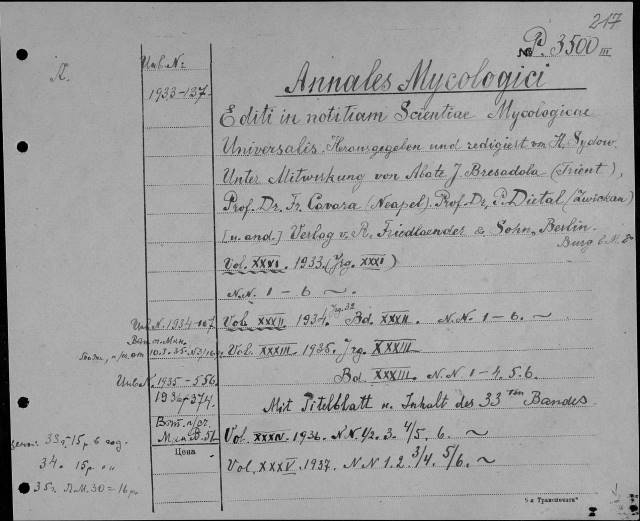 217
№ P. 3500 III
A.
Инв. №:
1933-137.
Annales Mycologici
Editi in notitiam Scientiae Mycologicae
Universalis. Herausgegeben und redigiert von H. Sydow.
Unter Mitwirkung von Abate J. Bresadola (Trient),
Prof. Dr. Fr. Cavara (Neapel). Prof. Dr. P. Dietel (Zwickau)
[u. and.] Verlag v. R. Friedlaender & Sohn, Berlin.
Burg b. M.
Vol. XXXI. 1933. (Jrg. XXXI)
N.N. 1-6 ~.
Инв. N. 1934-107
Vol. XXXII. 1934. Jrg. 32 Bd. XXXII. N.N. 1-6. ~
10.3.35.
Vol. XXXIII. 1935. Jrg. XXXIII
Инв. N. 1935-556.
Bd. XXXIII. N.N 1-4. 5.6.
1936-374.
Mit Titelblatt u. Inhalt des 33ten Bandes.
Vol. XXXIV. 1936. N N. 1/2. 3. 4/5. 6. ~
Цена
Vol. XXXV. 1937. N N 1. 2. 3/4. 5/6. ~
33г. 15р. в год.
34. 15р. "
35г. 30=16р.
5-я Транспечать"